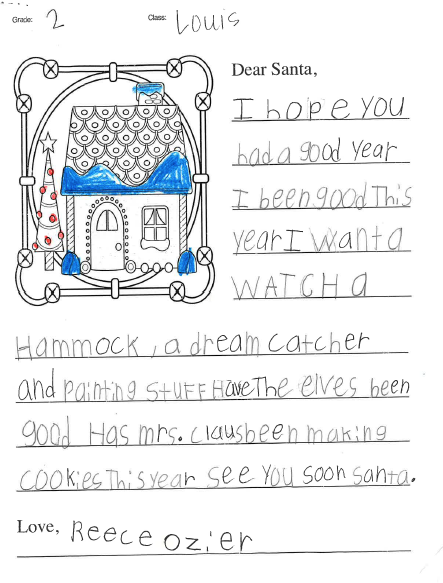 Grade: 2 Class: Louis
Dear Santa,
I hope you
had a good year
I been good This
year I want a
WATCH a
Hammock, a dream catcher
and painting stuff Have The elves been
good Has mrs. claus been making
cookies This year see you soon santa.
Love, Reece ozier